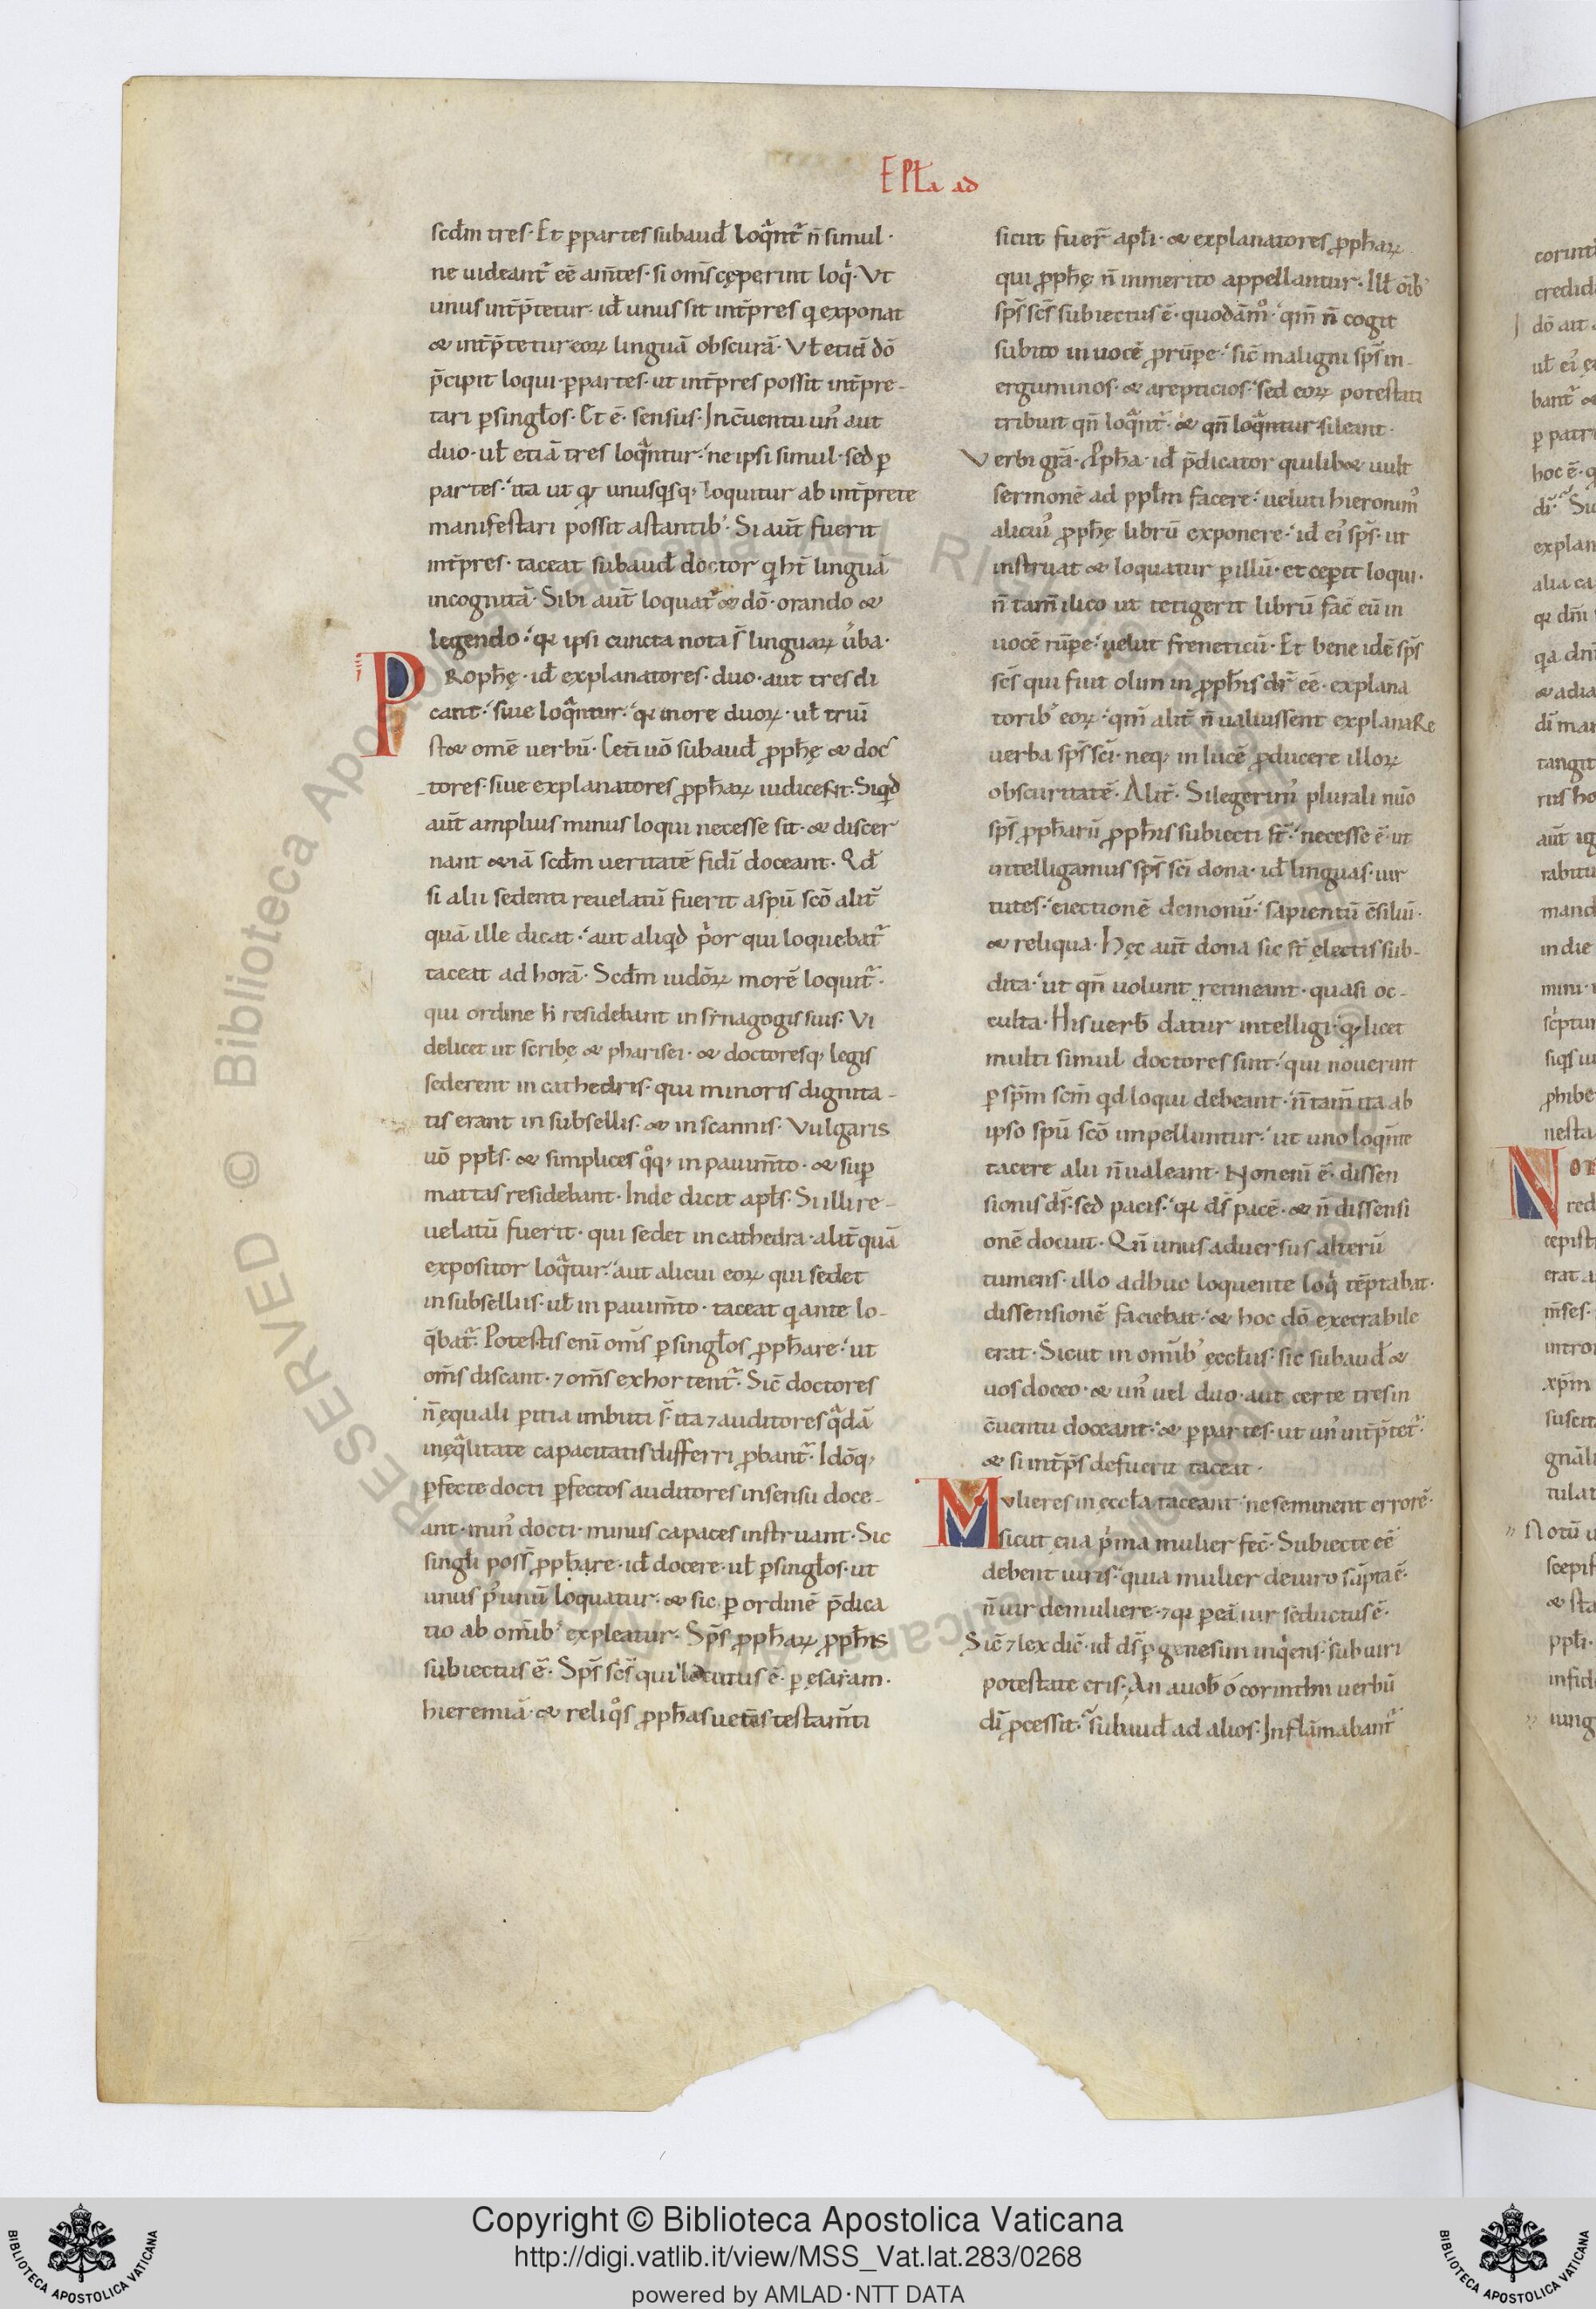 EPLa ad
scdm tres. Et ꝑpartes subaud loqͣntͬ n̄ simul.
ne uideantͬ eē am̄tes. si om̄s cęperint loqͥ. Vt
unus int̄p̄tetur. id unus sit int̄pres qͥ exponat
& int̄p̄tetur eoꝝ linguā obscurā. Vł etiā dō
p̄cipit loqui ꝑpartes. ut int̄pres possit int̄pre-
tari ꝑsingłos. Et ē sensus. In c̄uentu un᾽ aut
duo. uł etiā tres loqͣntur. ne ipsi simul. sed ꝑ
partes. ita ut qđ unusqͥsqꝫ loquitur ab int̄prete
manifestari possit astantib᾽. Si aut̄ fuerit
int̄pres. taceat subaud doctor qͥ ht̄ linguā
incognitā. Sibi aut̄ loquatͬ & dō. orando &
legendo. qͥa ipsi cuncta nota s̄ linguaꝝ ūba.
PRophę. id explanatores. duo. aut tres di
cant. siue loqͣntur. qͥa in ore duoꝝ. uł triū
st& om̄e uerbū. Cet̄i uō subaud ꝓphę & doc
tores. siue explanatores ꝓphaꝝ iudicent. Siqͥd
aut̄ amplius minus loqui necesse sit. & discer
nant &iā scdm ueritatē fidī doceant. Qd
si alii sedenti reuelatū fuerit a spū scō alit̄
quā ille dicat. aut aliqͥd pͥor qui loquebatͬ
taceat ad horā. Scdm iudōꝝ morē loquitͬ.
qui ordine hͥ residebant in sẏnagogis suis. Vi
delicet ut scribę & pharisei. & doctoresqꝫ legis
sederent in cathedris. qui minoris dignita-
tis erant in subselliis. & in scannis. Vulgaris
uō ppłs. & simplices qͦqꝫ in pauim̄to. & suꝑ
mattas residebant. Inde dicit apłs. Si illi re-
uelatū fuerit. qui sedet in cathedra. alit̄ quā
expositor loqͣtur. aut alicui eoꝝ qui sedet
in subselliis. uł in pauim̄to. taceat qͥ ante lo-
q̄batͬ. Potestis eni om̄s ꝑ singłos ꝓphare. ut
om̄s discant. ⁊ om̄s exhortentͬ. Sic̄ doctores
n̄ ęquali ꝑitia imbuti s̄. ita ⁊ auditores qͣdā
inęqͣlitate capacitatis differri ꝓbantͬ. Idōqꝫ
ꝑfecte docti ꝑfectos auditores in sensu doce-
ant. min᾽ docti. minus capaces instruant. Sic
singłi poss̄ ꝓphare. id docere. uł ꝑ singłos. ut
unus p᾽ unū loquatur. & sic ꝑ ordinē p̄dica
tio ab om̄ib᾽ expleatur. Sps̄ ꝓphaꝝ ꝓphis
subiectus ē. Sps̄ scs̄ qui locutus ē. ꝑ ęsaiam.
hieremiā. & reliqͦs ꝓphas uet̄is testam̄ti
sicut fuer̄ apłi. & explanatores ꝓphaꝝ
qui ꝓphę n̄ inmerito appellantur. Illł ōib᾽
sps̄ scs̄ subiectus ē. quodāmͦ. qm̄ n̄ cogit
subito in uocē ꝓrūpe. sic̄ maligni sps̄ in-
erguminos. & arepticios. sed eoꝝ potestati
tribuit qn̄ loqͣntͬ. & qn̄ loqͣntur sileant.
Verbi grā. Ꝓpha. id p̄dicator quilib& uult
sermonē ad ppłm facere. ueluti hieronim᾽
alicui᾽ ꝓphę librū exponere. id ei᾽ sps̄. ut
instruat & loquatur ꝑ illū. et cęperit loqui.
n̄ tam̄ ilico ut tetigerit librū fac̄ eū in
uocē rūpe. uelut freneticū. Et bene idē sps̄
scs̄ qui fuit olim in ꝓphis dr̄ eē. explana
torib᾽ eoꝝ. qm̄ alit̄ n̄ ualuissent explanaRe
uerba sps̄ sci. neqꝫ in lucē ꝓducere illoꝝ
obscuritatē. Alit̄. Si legerim᾽ plurali nūo
sps̄ ꝓpharū ꝓphis subiecti st̄. necesse ē ut
intelligamus sps̄ sci dona. id linguas. uir
tutes. eiectionē demonū. sapientū c̄siliū.
& reliqua. Hęc aut̄ dona sic st̄ electis sub-
dita. ut qn̄ uolunt retineant. quasi oc-
culta. His uerb datur intelligi. qđ licet
multi simul doctores sint. qui nouerint
ꝑ spm̄ scm̄ qd loqui debeant. n̄ tam̄ ita ab
ipso spū scō impelluntur. ut uno loqͣnte
tacere alii n̄ ualeant. Non eni ē dissen
sionis ds̄. sed pacis. qͥa ds̄ pacē. & n̄ dissensi
onē docuit. Qn̄ unus aduersus alterū
tumens. illo adhuc loquente loqͥ tēptabat.
dissensionē faciebat. & hoc dō execrabile
erat. Sicut in om̄ib᾽ ęccłiis. sic subaud &
uos doceo. & un᾽ uel duo. aut certe tres in
c̄uentu doceant. & ꝑ partes. ut un᾽ int̄p̄tetͬ.
& si int̄p̄s defuerit taceat.
Mulieres in ęccła taceant. ne seminent errorē.
sicut eua pͥma mulier fec̄. Subiecte eē
debent uiris. quia mulier de uiro sūpta ē.
n̄ uir de muliere. ⁊ qͥa ꝑ eā uir seductus ē.
Sic̄ ⁊ lex dic̄. id ds̄ ꝑ genesim inqͥens. sub uiri
potestate eris. An a uob ó corinthii uerbū
dī ꝓcessit. subaud ad alios. Inflāmabantͬ
Copyright © Biblioteca Apostolica Vaticana
http://digi.vatlib.it/view/MSS_Vat.lat.283/0268
powered by AMLAD·NTT DATA
BIBLIOTECA APOSTOLICA VATICANA
BIBLIOTECA APOSTOLICA VATICANA